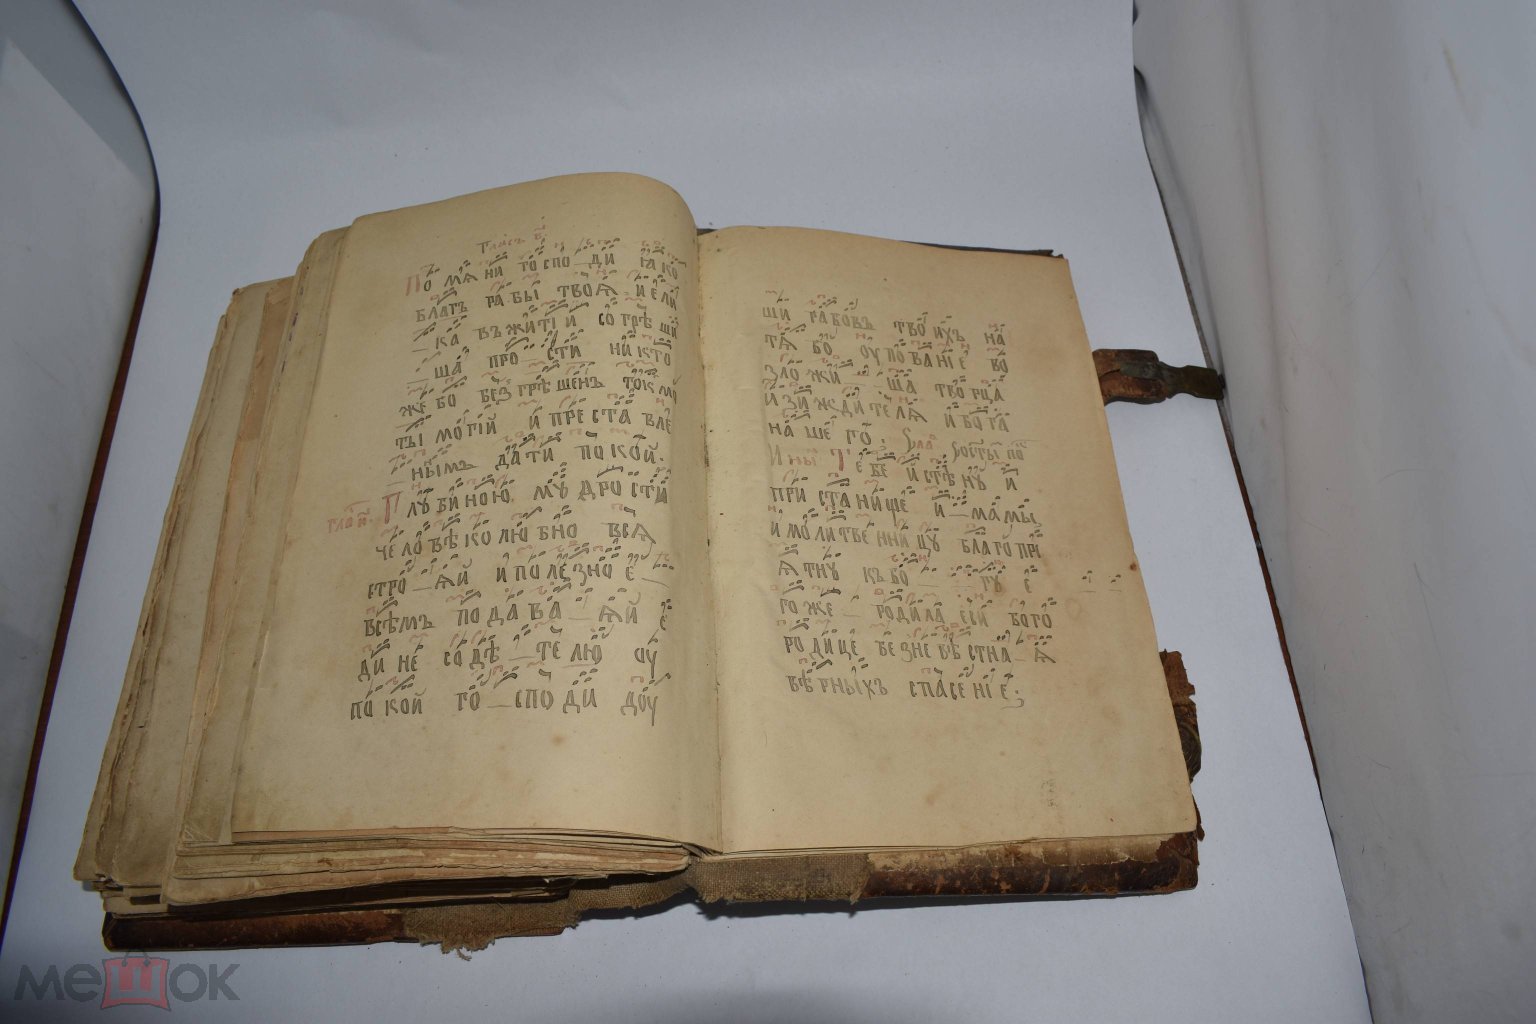 Гласъ н҃
По мѧни го спо ди ꙗко
благъ рабы твоѧ и ели
ка въ житіи со грѣ ши
ша про сти никто
же бо безгрѣшенъ токмо
ты могїй и преста вле
нымъ дати покой.
глас н҃. Глꙋбиною мꙋ дрости
человѣколюбно всѧ
стро ѧй и полезное
всѣмъ подава ѧй е
дине содѣ телю оу
покой го споди доу
ши рабовъ твоихъ на
тѧ бо оупованіе во
зложи ша творца
и зиждителѧ и бога
нашего. Слав
И ны Тебе и стѣнꙋ и
пристанище и мамы
и молитвенницꙋ благопрі
ѧтнꙋ къ бо гꙋ е
гоже родила еси бого
родице безневѣстна ѧ
вѣрныхъ спасеніе.
мешок